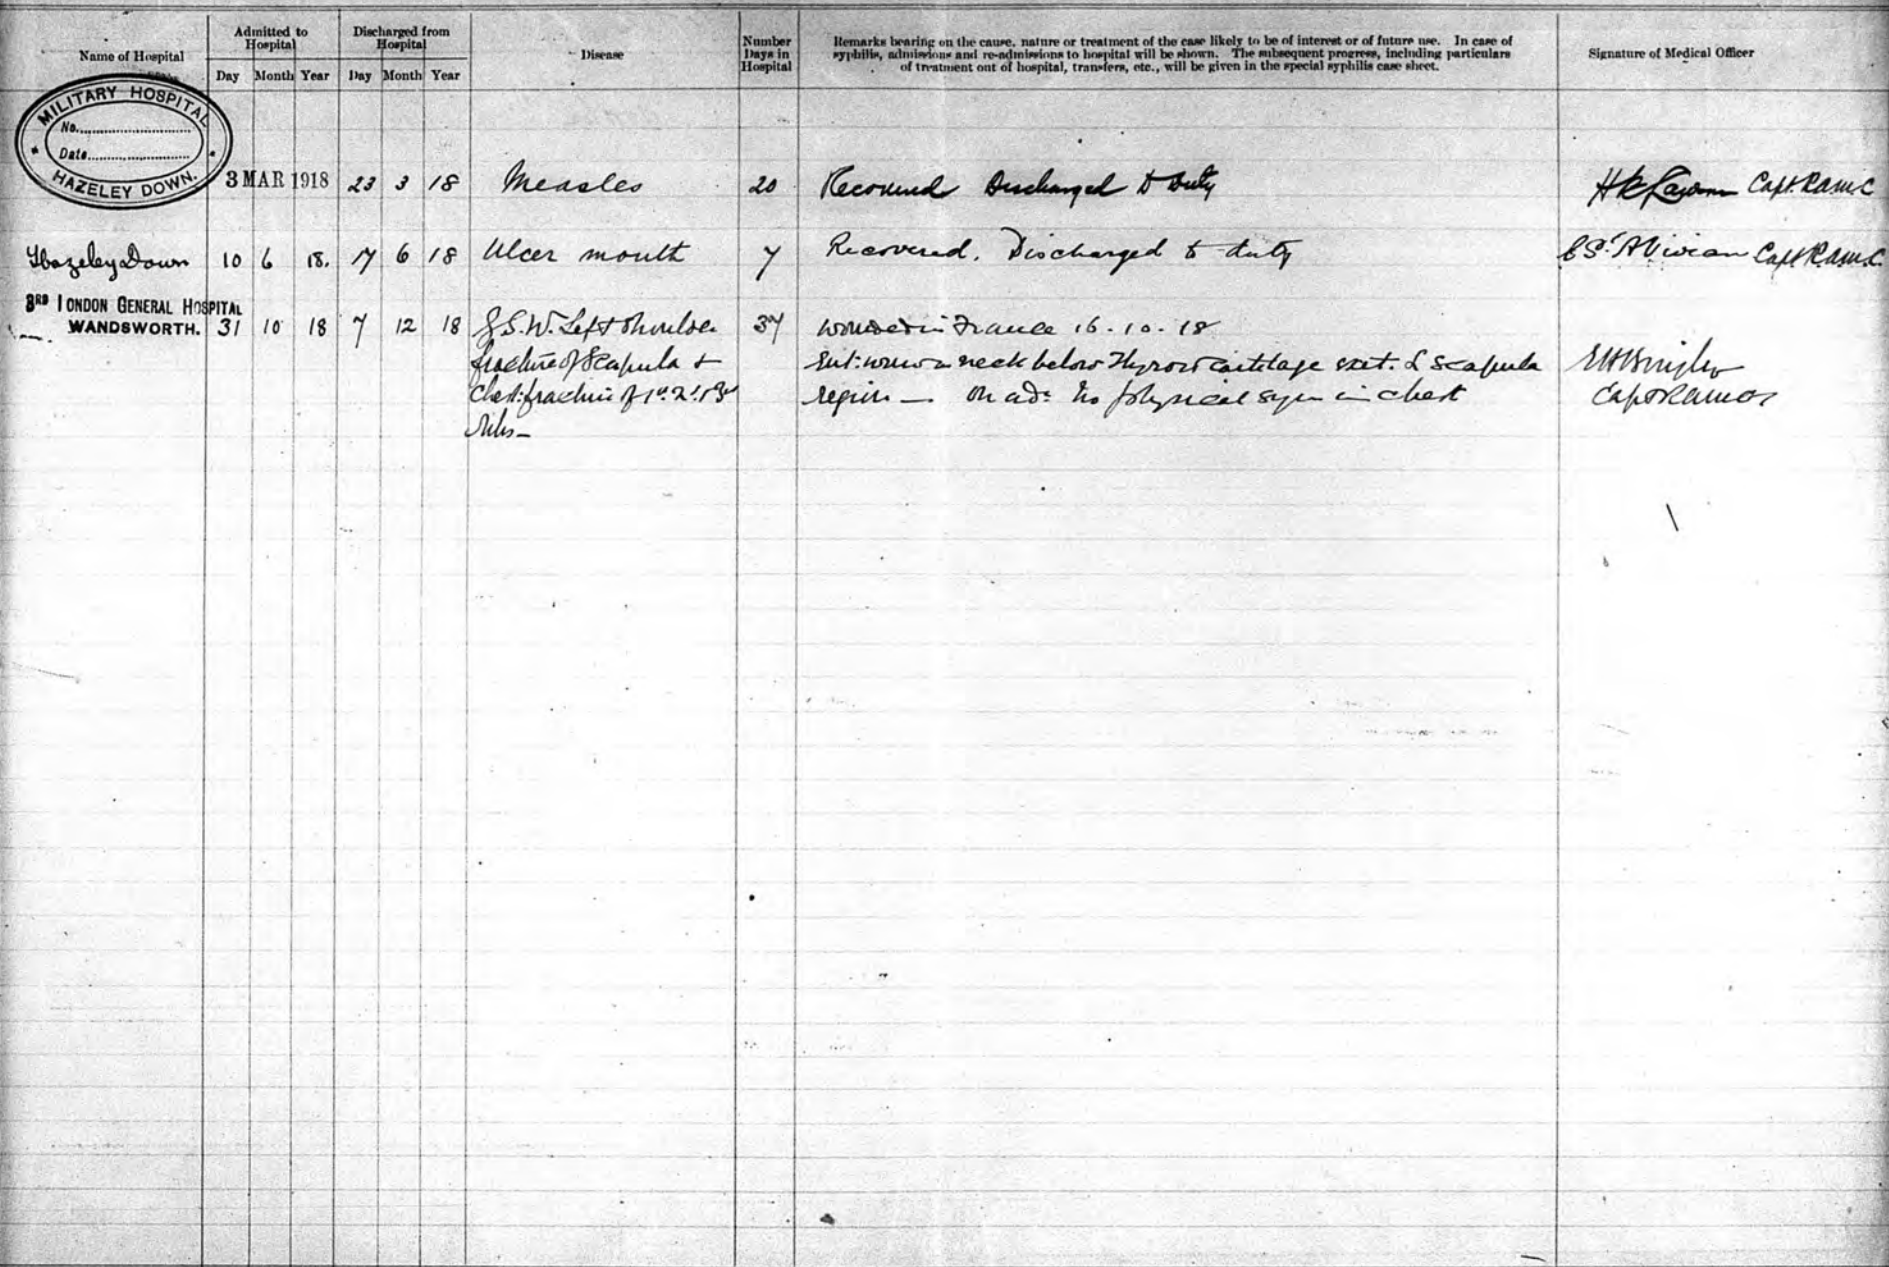 Name of Hospital
Admitted to Hospital
Discharged from Hospital
Disease
Number Days in Hospital
Remarks bearing on the cause, nature or treatment of the case likely to be of interest or of future use. In case of
syphilis, admissions and re-admissions to hospital will be shown. The subsequent progress, including particulars
of treatment out of hospital, transfers, etc., will be given in the special syphilis case sheet.
Signature of Medical Officer
Day Month Year Day Month Year
MILITARY HOSPITAL
No.
Date
HAZELEY DOWN.
3 MAR 1918 23 3 18 Measles 20 Recovered Discharged to Duty Capt. R.A.M.C
Hazeley Down 10 6 18. 17 6 18 Ulcer mouth 7 Recovered. Discharged to duty Vivian Capt R.A.M.C.
3RD LONDON GENERAL HOSPITAL
WANDSWORTH. 31 10 18 7 12 18 G.S.W. Left Shoulder 37 wounded in France 16.10.18
fracture of Scapula + Ent: wound neck below Thyroid cartilage exit. L scapula
Chest: fracture of 1st 2nd 3rd region — On ad: no physical sign in chest Capt
ribs —